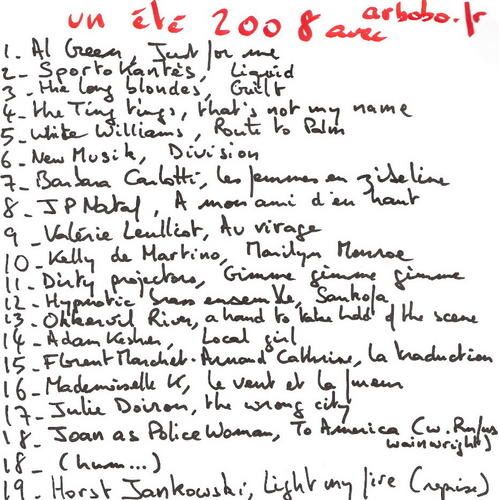 un été 2008 avec arbobo.fr
1- Al Green, Just for me
2- Sporto Kantès, Liquid
3- the long blondes, Guilt
4- the Ting tings, that's not my name
5- White Williams, Route to Palm
6- New Musik, Division
7- Barbara Carlotti, les femmes en zibeline
8- JP Nataf, A mon ami d'en haut
9- Valérie Leulliot, Au virage
10- Kelly de Martino, Marilyn Monroe
11- Dirty projectors, Gimme gimme gimme
12- Hypnotic brass ensemble, Sankofa
13- Okkervil River, a hand to take hold of the scene
14- Adam Kesher, Local girl
15- Florent Marchet-Arnaud Cathrine, la traduction
16- Mademoiselle K, le vent et la fureur
17- Julie Doiron, the wrong city
18- Joan as Police Woman, To America (w. Rufus
wainwright)
18- (hum...)
19- Horst Jankowski, Light my fire (reprise)